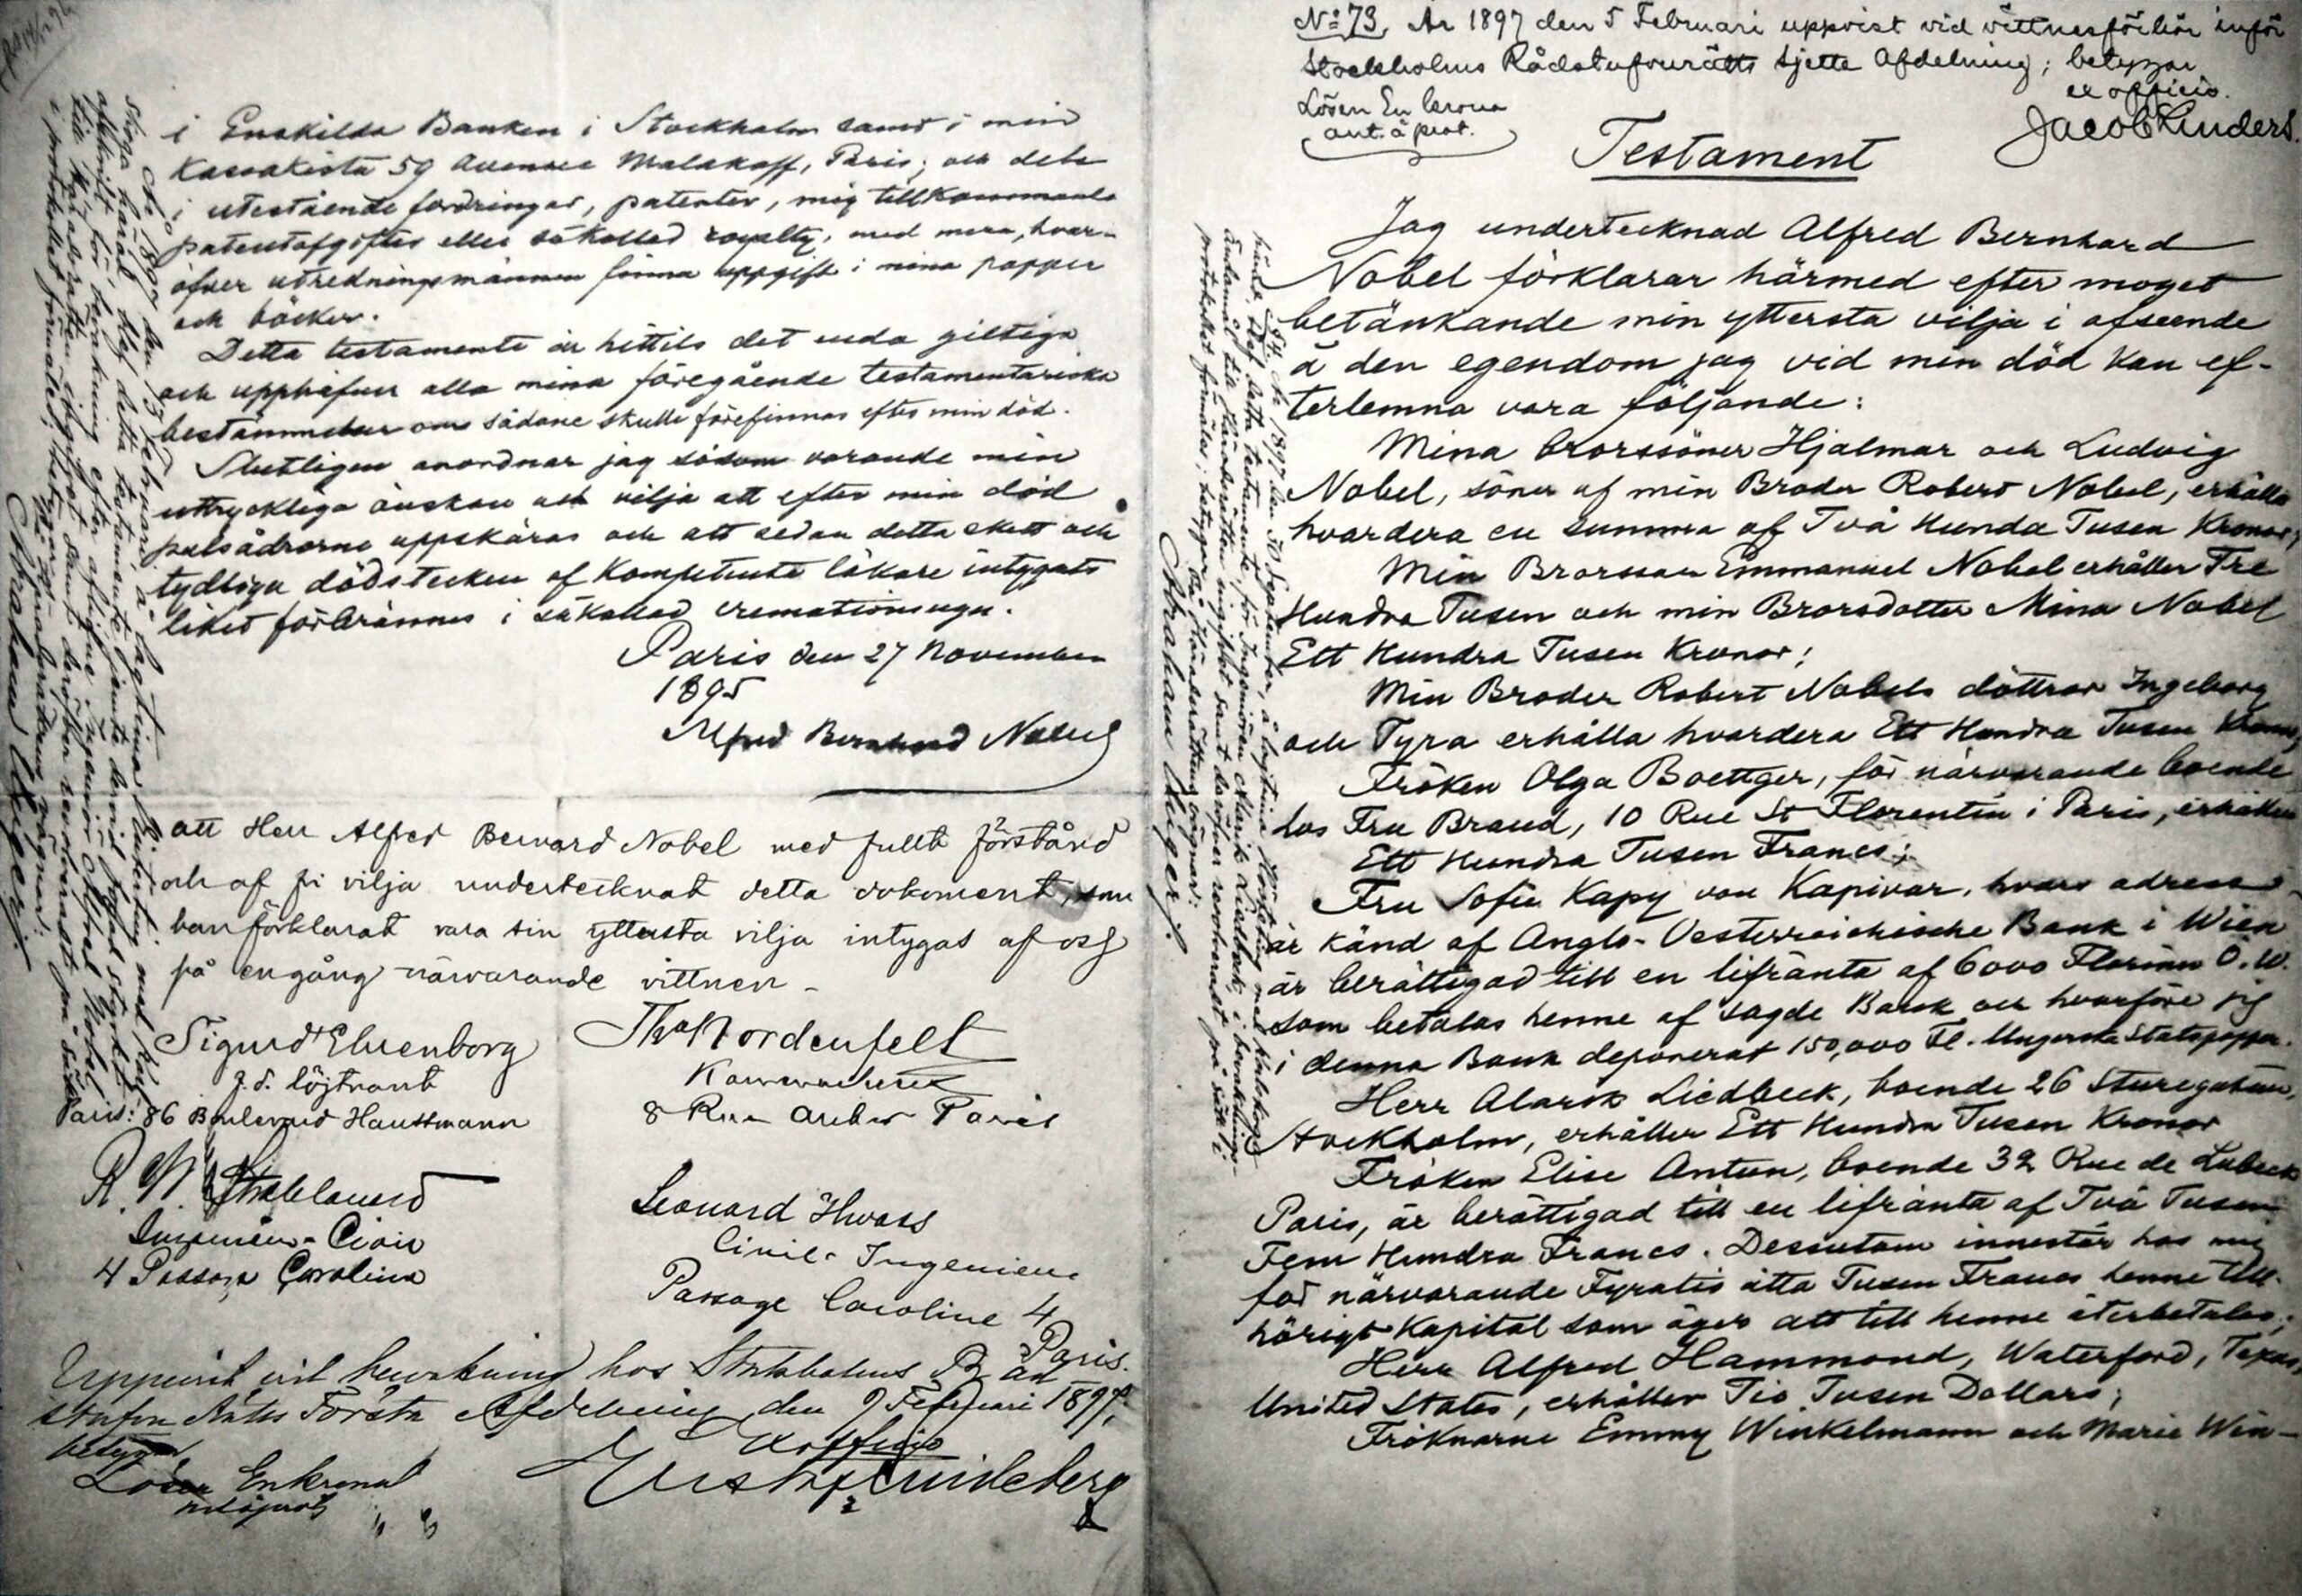 i Enskilda Banken i Stockholm samt i min
Kassakista 59 Avenue Malakoff, Paris; och dels
i utestående fordringar, patenter, mig tillkommande
patentafgifter eller såkallad royalty, med mera, hvar-
öfver utredningsmännen finna uppgift i mina papper
och böcker.
Detta testamente är hittils det enda giltiga
och upphäfver alla mina föregående testamentariska
bestämmelser om sådane skulle förefinnas efter min död.
Slutligen anordnar jag såsom varande min
uttryckliga önskan och vilja att efter min död
pulsådrorna uppskäras och att sedan detta skett och
tydliga dödstecken af Kompetenta läkare intygats
liket förbrännes i såkallad cremationsugn.
Paris den 27 November
1895
Alfred Bernhard Nobel
att Herr Alfred Bernard Nobel med fullt förstånd
och af fri vilja undertecknat detta dokument, som
han förklarat vara sin yttersta vilja intygas af oss
på en gång närvarande vittnen –
Sigurd Ehrenborg
f.d. löjtnant
Paris: 86 Boulevard Haussmann
Th Nordenfelt
8 Rue Auber Paris
R. W. Strehlenert
Ingenieur-Civil
4 Passage Caroline
Leonard Hwass
Civil-Ingenieur
Passage Caroline 4
Paris.
Uppvist vid bevakning hos Stockholms Råd
stufvu Rätts Första Afdelning den 9 Februari 1897,
betygar
Ex officio
Lösen En krona
No 73. År 1897 den 5 Februari uppvist vid vittnesförhör inför
Stockholms Rådstufvurätts Sjette Afdelning; betygar
ex officio.
Lösen En krona
ant. å prot.
Jacob Linders.
Testament
Jag undertecknad Alfred Bernhard
Nobel förklarar härmed efter moget
betänkande min yttersta vilja i afseende
å den egendom jag vid min död kan ef-
terlemna vara följande:
Mina Brorssöner Hjalmar och Ludvig
Nobel, söner af min Broder Robert Nobel, erhålla
hvardera en summa af Två Hundra Tusen Kronor;
Min Brorsson Emmanuel Nobel erhåller Tre
Hundra Tusen och min Brorsdotter Mina Nobel
Ett Hundra Tusen Kronor;
Min Broder Robert Nobels döttrar Ingeborg
och Tyra erhålla hvardera Ett Hundra Tusen Kronor;
Fröken Olga Boettger, för närvarande boende
hos Fru Brand, 10 Rue St Florentin i Paris, erhåller
Ett Hundra Tusen Francs;
Fru Sofie Kapy von Kapivar, hvars adress
är känd af Anglo-Oesterreichische Bank i Wien
är berättigad till en lifränta af 6000 Florins Ö.W.
som betalas henne af sagde Bank och hvarföre jag
i denna Bank deponerat 150,000 Fl. Ungerska Statspapper.
Herr Alarik Liedbeck, boende 26 Sturegatan,
Stockholm, erhåller Ett Hundra Tusen Kronor
Fröken Elise Antun, boende 32 Rue de Lubeck
Paris, är berättigad till en lifränta af Två Tusen
Fem Hundra Francs. Dessutom innestår hos mig
för närvarande Fyratio åtta Tusen Francs henne till-
hörigt Kapital som äger att till henne återbetalas;
Herr Alfred Hammond, Waterford, Texas,
United States, erhåller Tio Tusen Dollars;
Fröknarne Emmy Winkelmann och Marie Win-